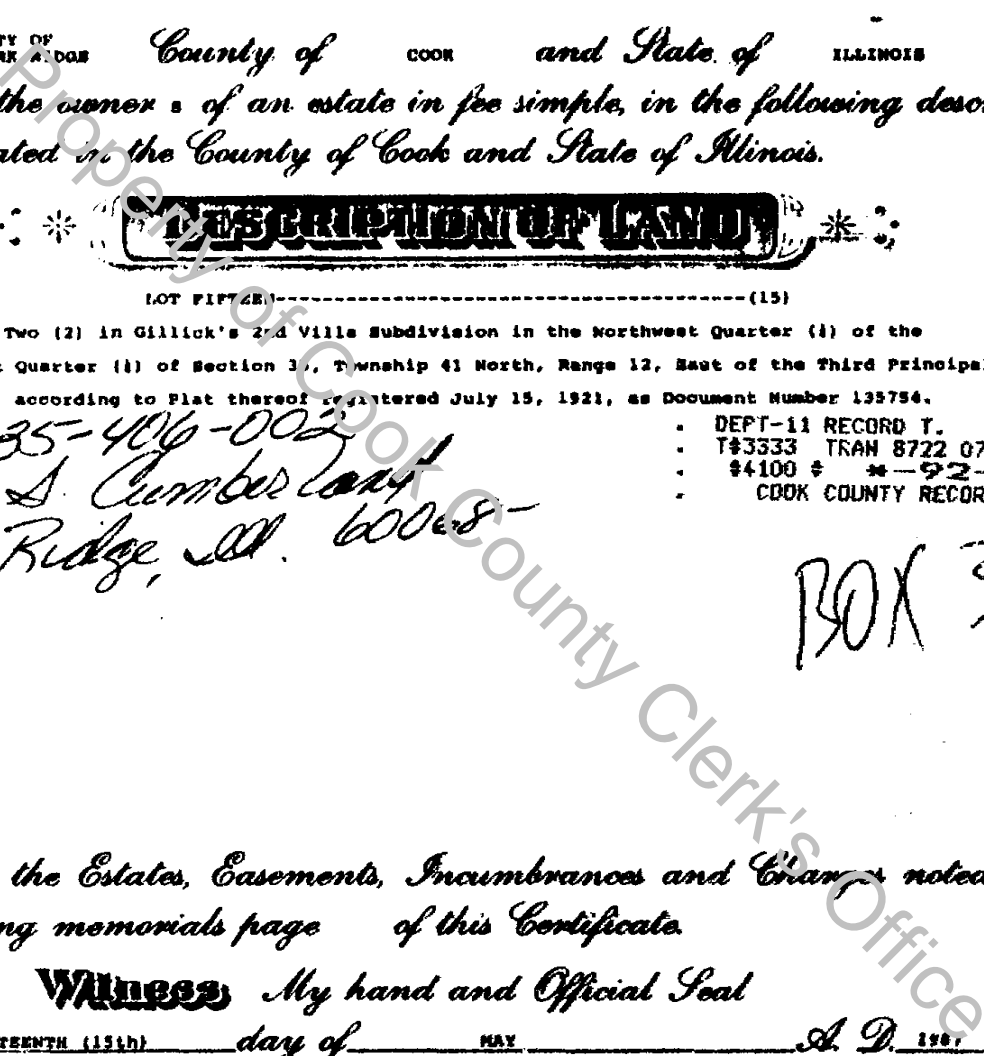 TY OF
RK RIDGE County of COOK and State of ILLINOIS
the owner s of an estate in fee simple, in the following desc
ated in the County of Cook and State of Illinois.
DESCRIPTION OF LAND
LOT FIFTEEN----------------------------------------------------(15)
Two (2) in Gillick's 2nd Villa Subdivision in the Northwest Quarter (¼) of the
t Quarter (¼) of Section 35, Township 41 North, Range 12, East of the Third Principal
according to Plat thereof registered July 15, 1921, as Document Number 135754.
35-406-002
S. Cumberland
Ridge, Ill. 60068-
. DEPT-11 RECORD T.
. T#3333 TRAN 8722 07
. #4100 # *-92-
. COOK COUNTY RECOR
BOX
the Estates, Easements, Incumbrances and Charges noted
ng memorials page of this Certificate.
Witness My hand and Official Seal
TEENTH (15th) day of MAY A. D. 198
Property of Cook County Clerk's Office